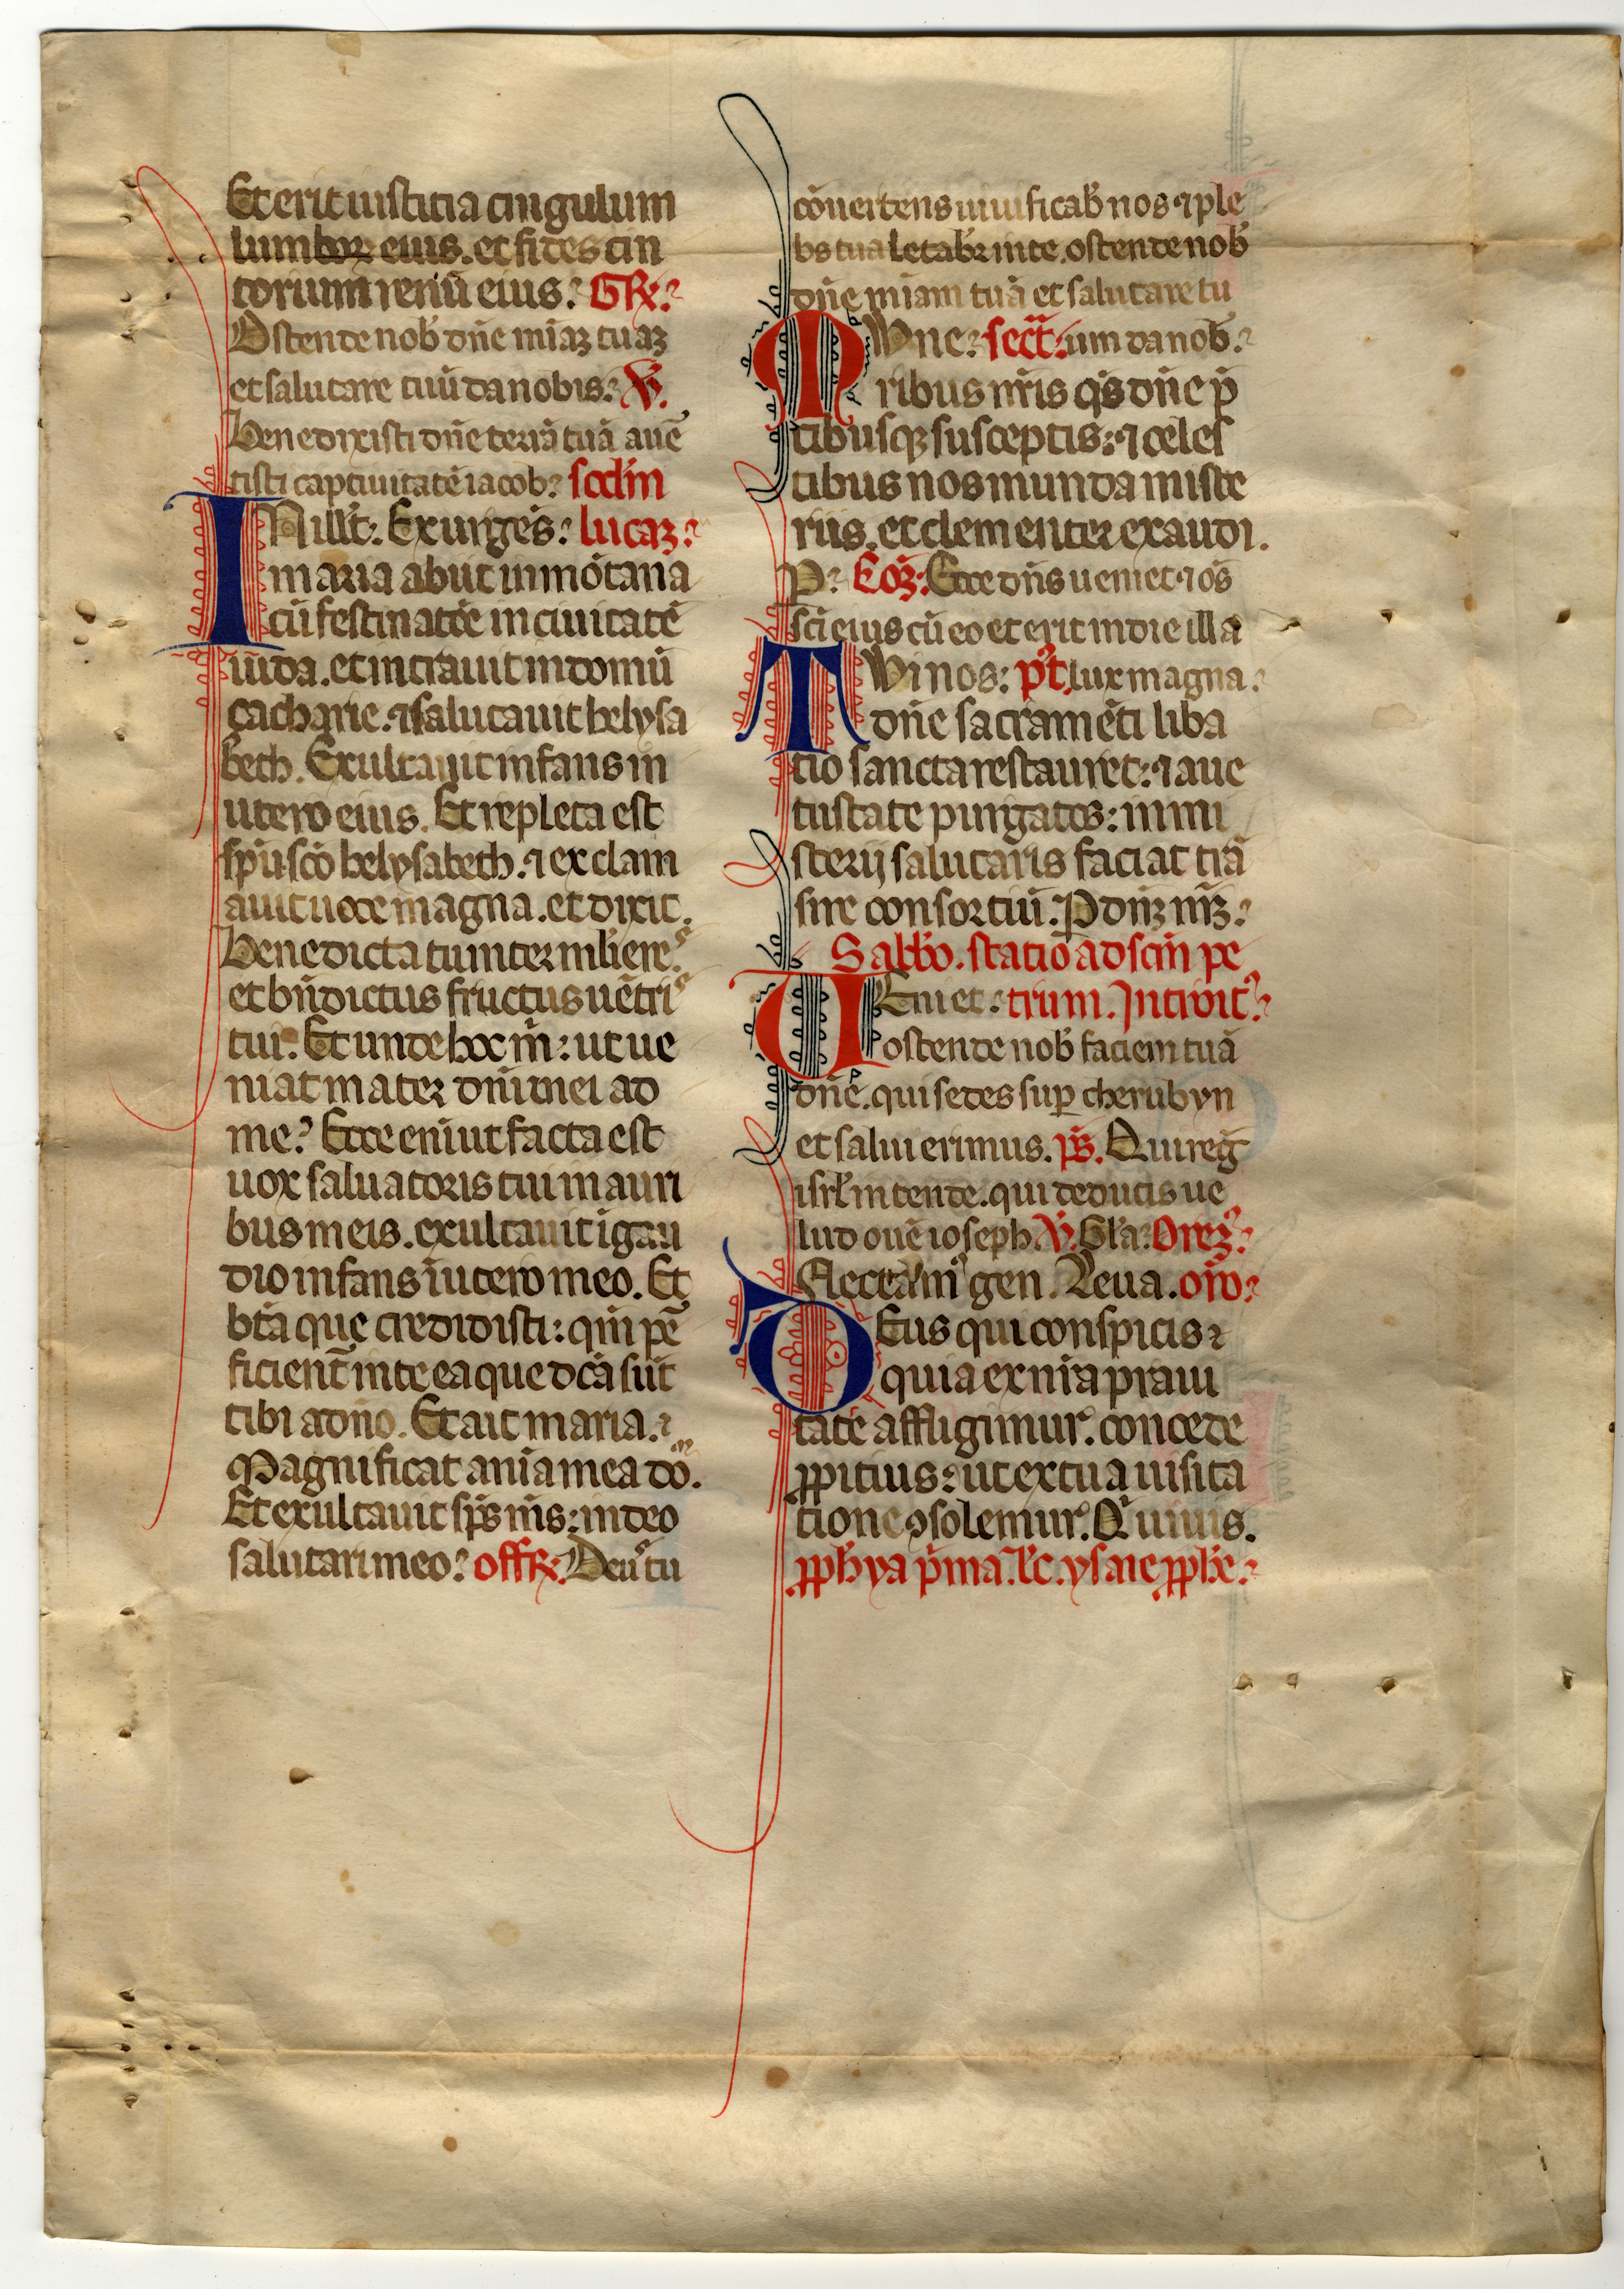 Et erit iusticia cingulum
lumbor eius. et fides cin
torium reniū eius. GR.
Ostende nob dn̄e miaz tuaz
et salutare tuū da nobis. V.
Benedixisti dn̄e terrā tuā auer̄
tisti captiuitatē iacob. scdm
IN illt. Exurgēs. lucaz.
maria abiit in mōtana
cū festinatōe in ciuitatē
iuda. et intrauit in domū
çacharie. ⁊ salutauit helysa
beth. Exultauit infans in
utero eius. Et repleta est
spū sc̄o helysabeth. ⁊ exclam
auit uoce magna. et dixit.
Benedicta tu inter mliere⁹
et bn̄dictus fructus uētri⁹
tui. Et unde hoc m̄: ut ue
niat mater dn̄i mei ad
me? Ecce eni ut facta est
uox salutatoris tui in auri
bus meis. exultauit ī gau
dio infans ī utero meo. Et
btā que credidisti: qm̄ pe
ficient̄ in te ea que dcā sūt
tibi a dn̄o. Et ait maria.
Magnificat ania mea dōm.
Et exultauit sps m̄s: in deo
salutari meo. offR. Deus tu
cōuertens uiuificab nos ⁊ ple
bs tua letabr in te. ostende nob
dn̄e miam tuā et salutare tu
MUne. sect. um da nob.
ribus nr̄is qs dn̄e p̄
tibusqz susceptis: ⁊ celes
tibus nos munda miste
riis. et clementer exaudi.
P. Coz. Ecce dn̄s ueniet ⁊ os
sc̄i eius cū eo et erit in die illa
TUi nos: pt. lux magna.
dn̄e sacramēti liba
tio sancta restauret: ⁊ a ue
tustate purgatos: in mi
sterij salutaris faciat trā
sire consortiū. P dn̄z nr̄z.
Sabbo. statio ad sc̄m pe
UEni et. trum. Introit.
ostende nob faciem tuā
dn̄e. qui sedes sup cherubyn
et salui erimus. ps. Qui reḡ
isrl intende. qui deducis ue
lud ouē ioseph. V. Gla. Orez.
Flectam gen. Leua. oro.
DEus qui conspicis
quia ex nr̄a praui
tate affligimur. concede
ppitius: ut ex tua uisita
tione ꝯsolemur. Qui uiuis.
pphya p̄ma. lc. ysaie pphe.